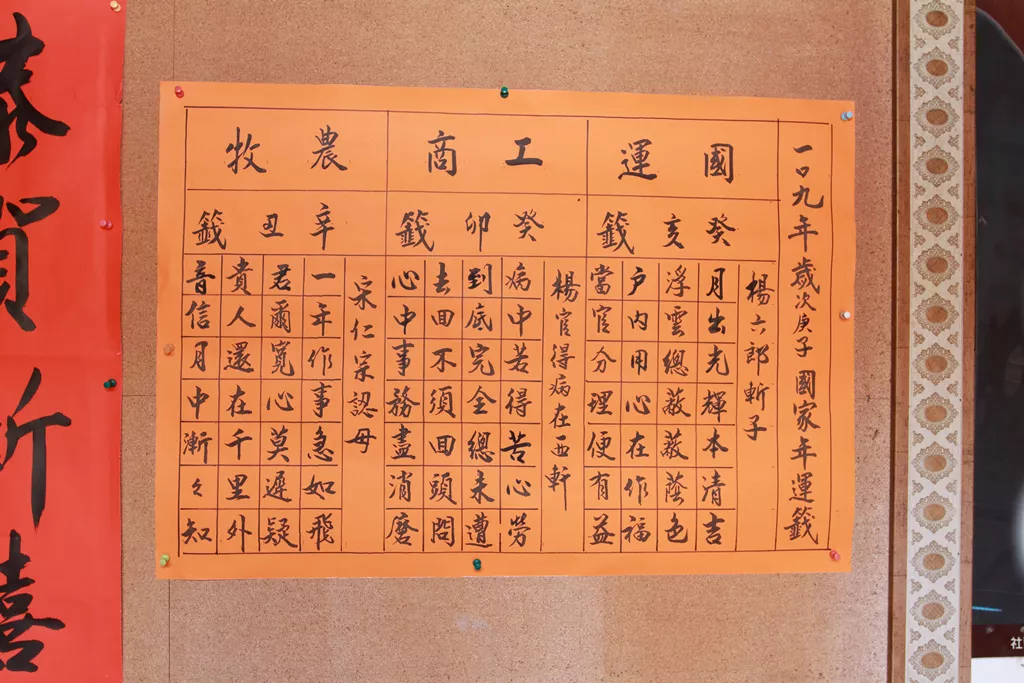 一〇九年歲次庚子國家年運籤
國運
癸亥籤
楊六郎斬子
月出光輝本清吉
浮雲總蔽蔽蔭色
戶內用心在作福
當官分理便有益
工商
癸卯籤
楊官得病在西軒
病中若得苦心勞
到底完全總未遭
去回不須回頭問
心中事務盡消磨
農牧
辛丑籤
宋仁宗認母
一年作事急如飛
君爾寬心莫遲疑
貴人還在千里外
音信月中漸々知
恭賀新喜
社